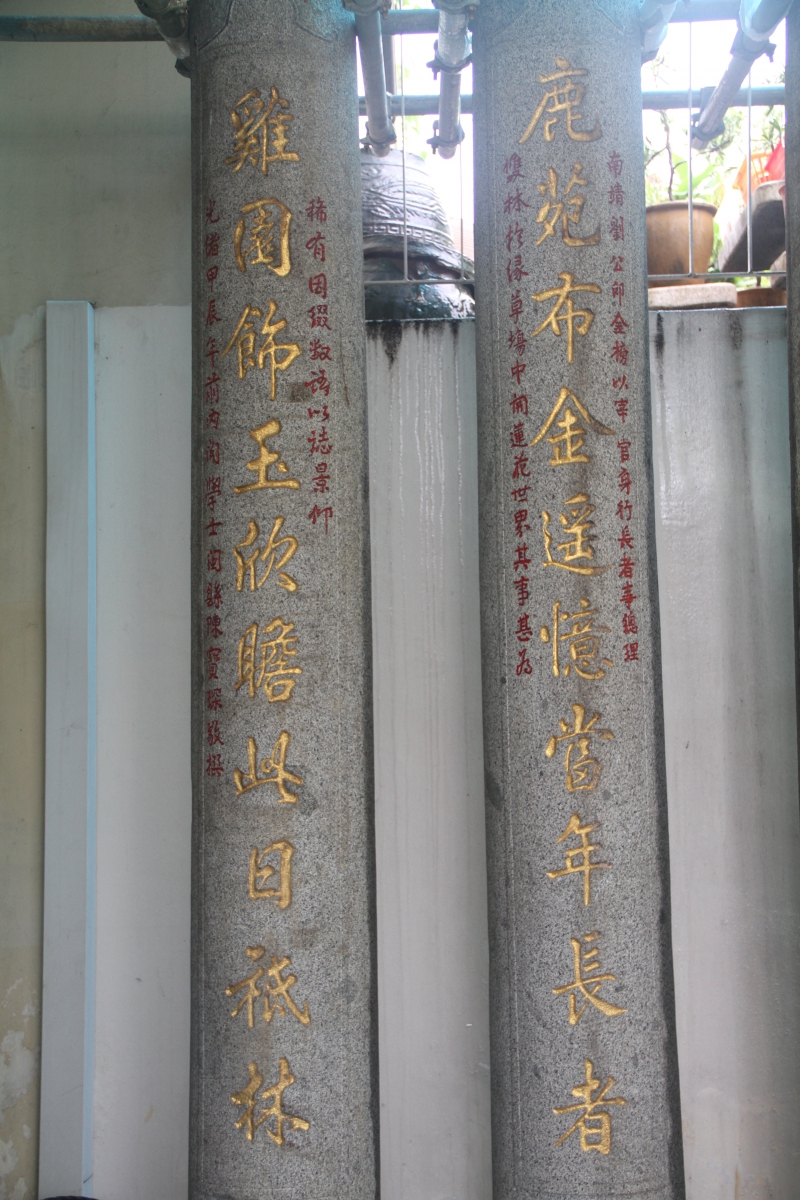 南靖劉公即金榜以宰官身行長者事總理
鹿苑布金遥憶當年長者
雙林於緑草塲中開蓮花世界其事甚為
稀有因綴数語以誌景仰
雞園飾玉欣瞻此日祗林
光緒甲辰年前内閣學士閩縣陳寶琛敬撰